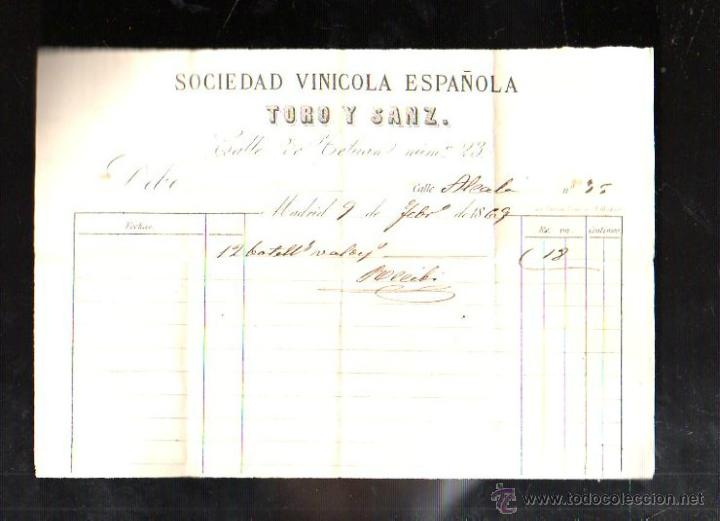 SOCIEDAD VINICOLA ESPAÑOLA
TORO Y SANZ.
Calle de Tetuan núm.º 23
Debe
Calle Alcalá nº 35
Madrid 9 de Febº de 1869
Fechas. Rs. vn. Centimos
12 botellˢ 18
Recibí
www.todocoleccion.net